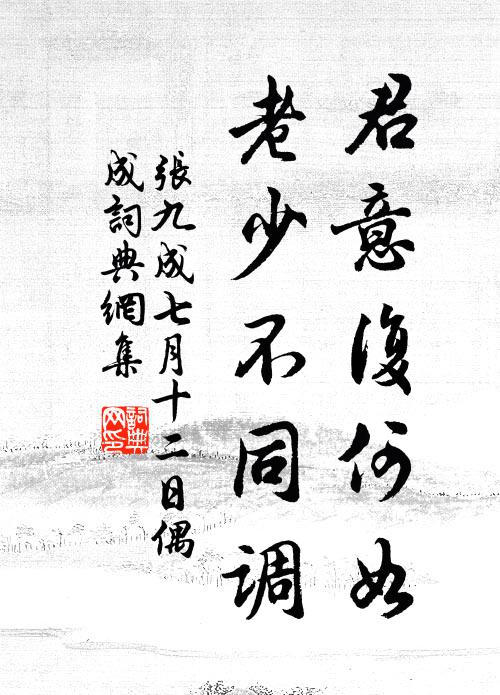 君意復何如
老少不同調
張九成七月十二日偶
成詞典網集
詞典网印